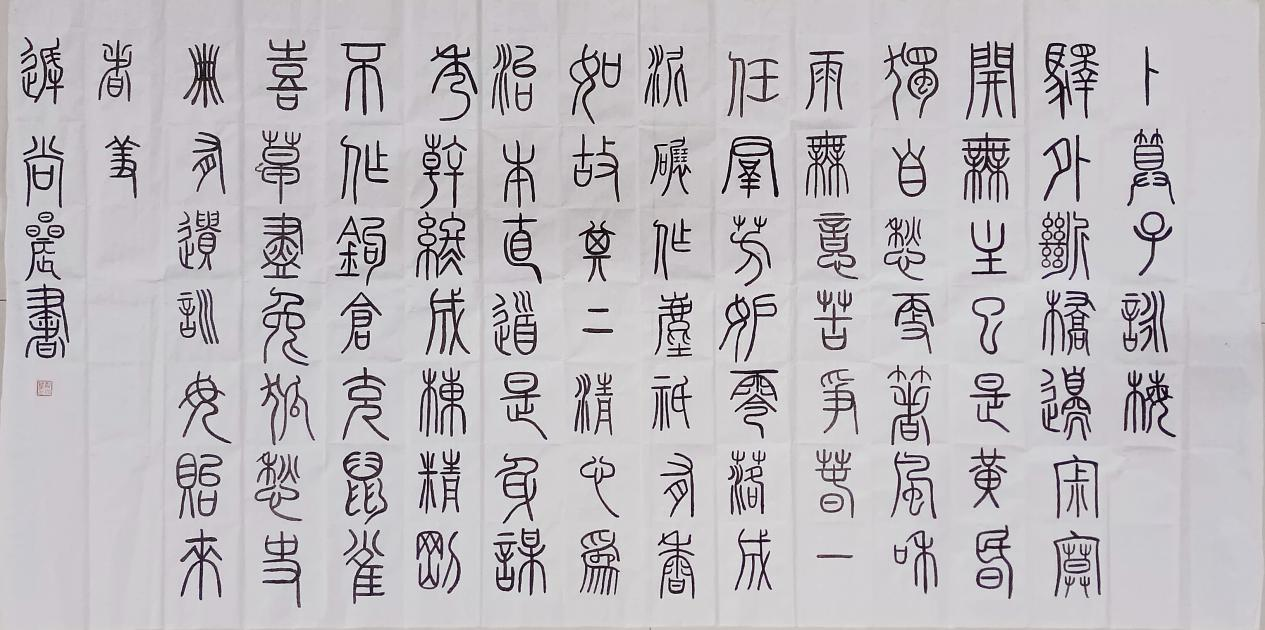 卜算子詠梅
驛外斷橋邊寂寞
開無主已是黃昏
獨自愁更著風和
雨無意苦爭春一
任羣芳妒零落成
泥碾作塵祇有香
如故其二清心爲
治本直道是身謀
秀幹終成棟精剛
不作鉤倉充鼠雀
喜草盡兔狐愁史
冊有遺訓毋貽來
者羞
尚晨書